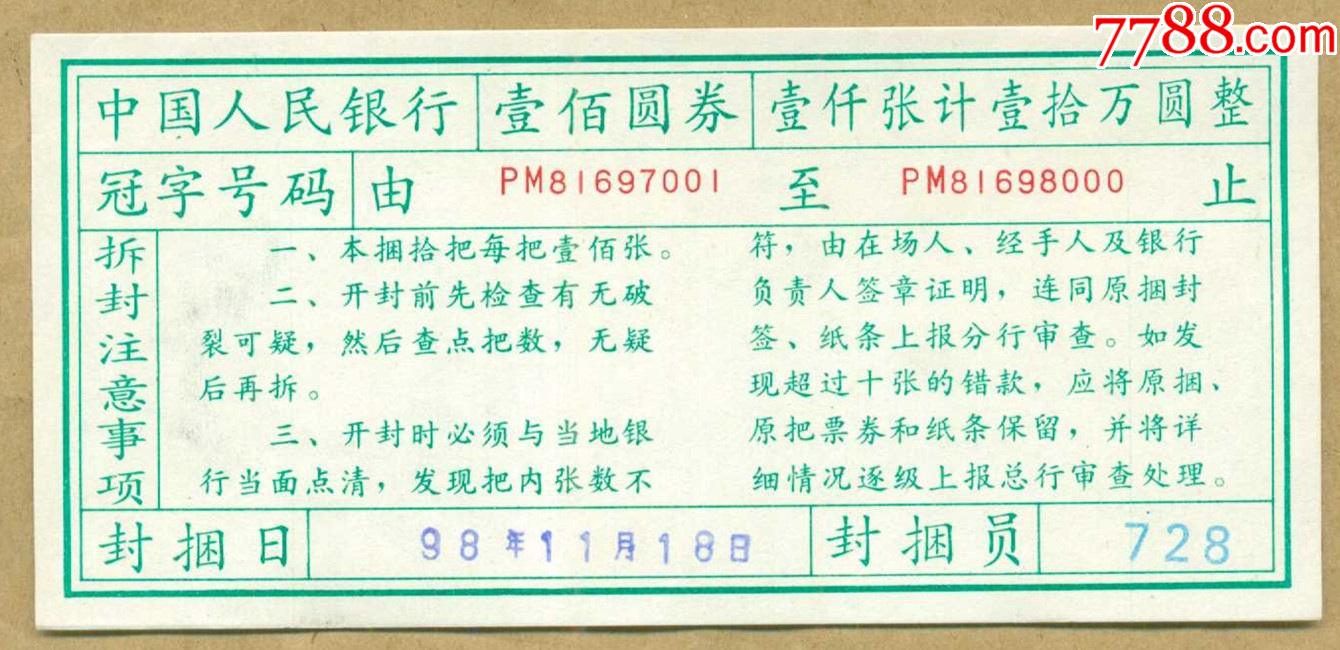 7788.com
中国人民银行 壹佰圆券 壹仟张计壹拾万圆整
冠字号码 由 PM81697001 至 PM81698000 止
拆封注意事项
一、本捆拾把每把壹佰张。
二、开封前先检查有无破
裂可疑，然后查点把数，无疑
后再拆。
三、开封时必须与当地银
行当面点清，发现把内张数不
符，由在场人、经手人及银行
负责人签章证明，连同原捆封
签、纸条上报分行审查。如发
现超过十张的错款，应将原捆、
原把票券和纸条保留，并将详
细情况逐级上报总行审查处理。
封捆日 98年11月18日 封捆员 728